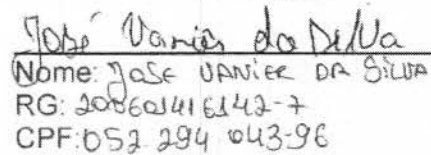 José Vanier da Silva
Nome: JOSE VANIER DA SILVA
RG: 200601416142-7
CPF: 052 294 043-96